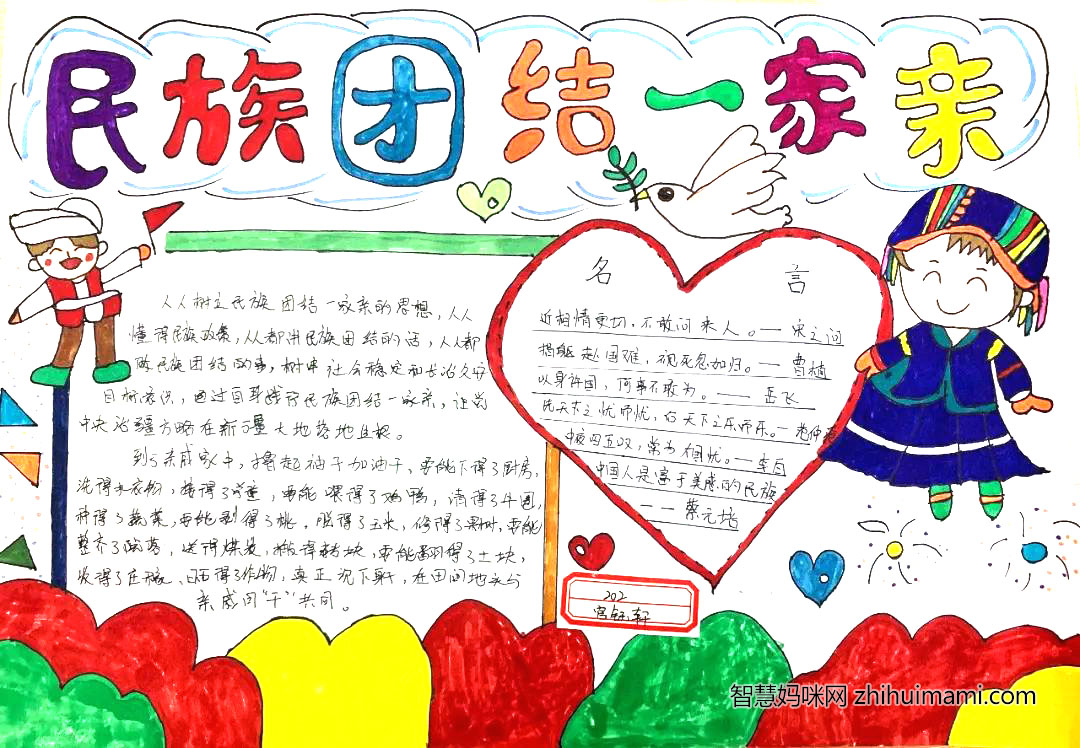 民族团结一家亲
人人树立民族团结一家亲的思想，人人
懂得民族政策，人人都讲民族团结的话，人人都
做民族团结的事，树牢社会稳定和长治久安
目标意识，通过自身践行民族团结一家亲，让党
中央治疆方略在新疆大地落地生根。
到亲戚家中，撸起袖子加油干，要能下得了厨房，
洗得了衣物，要能喂得了鸡鸭，清得了牛圈，
种得了蔬菜，要能剥得了桃，脱得了玉米，修得了果树，要能
整齐了院落，送得煤炭，搬得砖块，要能翻得了土块，
收得了庄稼，晒得了作物，真正沉下身子，在田间地头与
亲戚同“干”共同。
名 言
近乡情更切，不敢问来人。——宋之问
捐躯赴国难，视死忽如归。——曹植
以身许国，何事不敢为。——岳飞
先天下之忧而忧，后天下之乐而乐。—范仲淹
中夜四五叹，常为大国忧。——李白
中国人是富于美感的民族
——蔡元培
202
宫钰轩
智慧妈咪网 zhihuimami.com